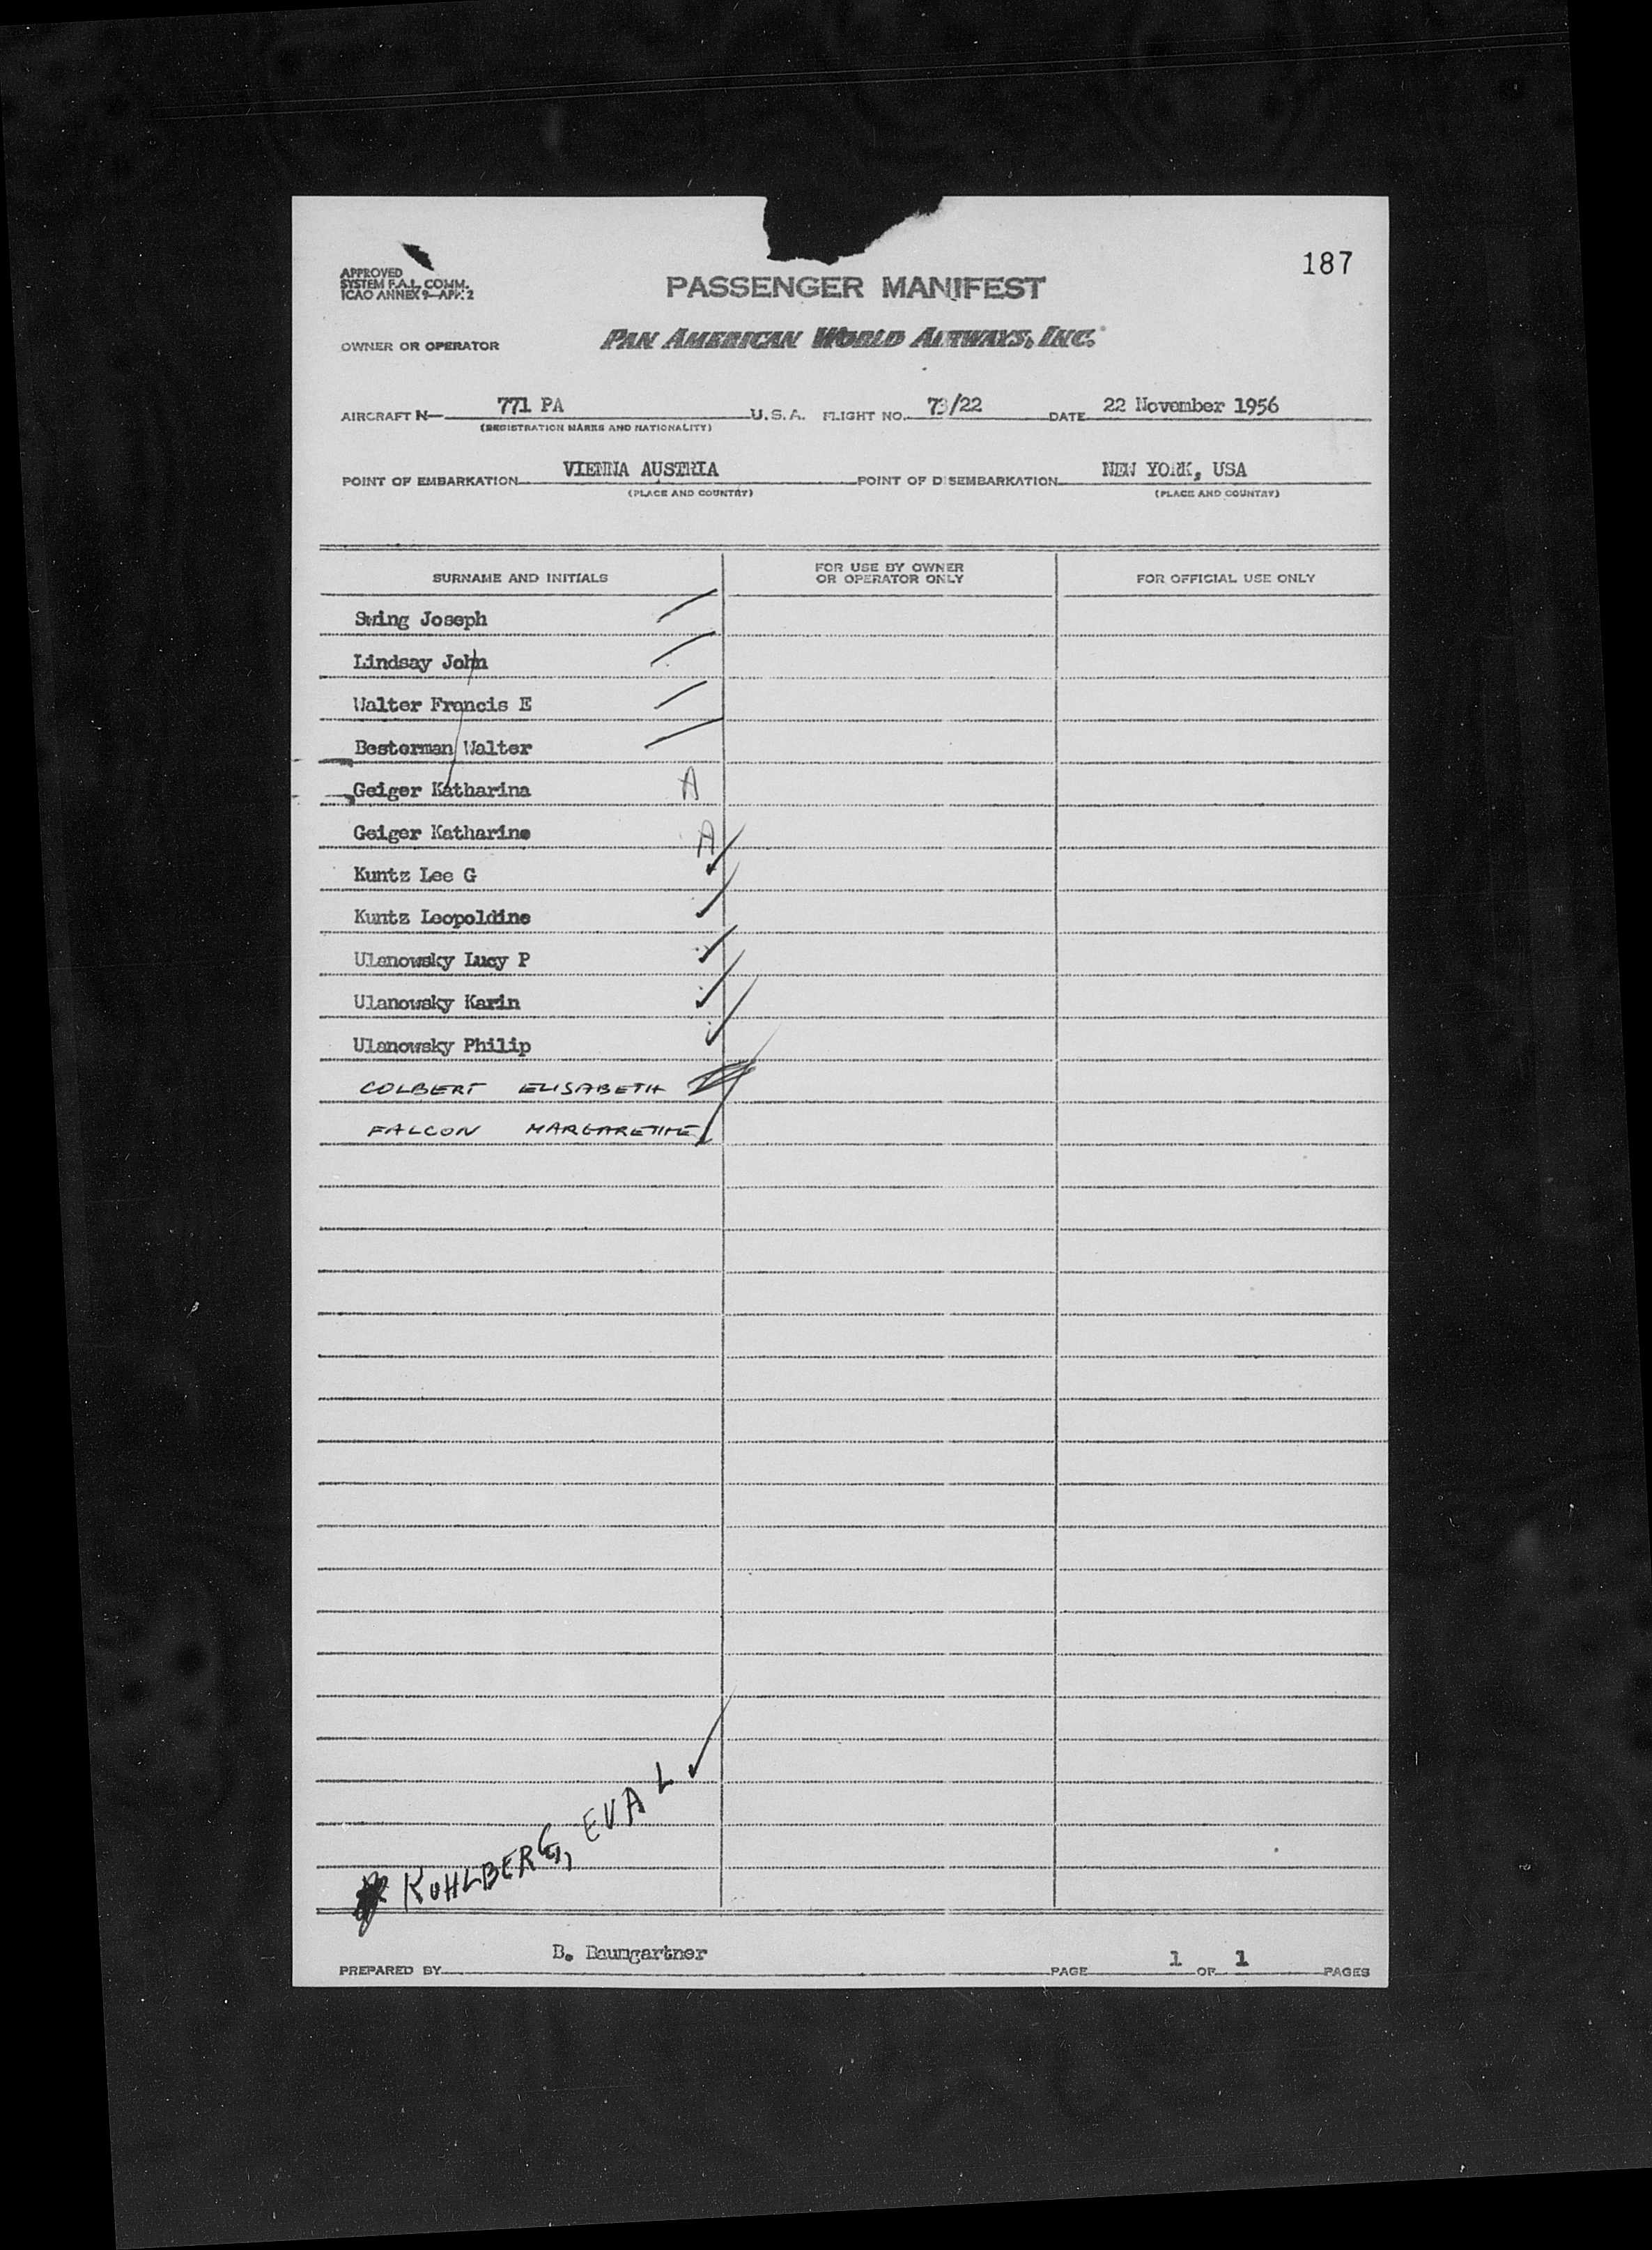 187
APPROVED
SYSTEM F.A.L. COMM.
ICAO ANNEX 9—APP. 2
PASSENGER MANIFEST
OWNER OR OPERATOR PAN AMERICAN WORLD AIRWAYS, INC.
AIRCRAFT N— 771 PA U.S.A. FLIGHT NO. 73/22 DATE 22 November 1956
(REGISTRATION MARKS AND NATIONALITY)
POINT OF EMBARKATION VIENNA AUSTRIA POINT OF DISEMBARKATION NEW YORK, USA
(PLACE AND COUNTRY) (PLACE AND COUNTRY)
SURNAME AND INITIALS FOR USE BY OWNER OR OPERATOR ONLY FOR OFFICIAL USE ONLY
Swing Joseph
Lindsay John
Walter Francis E
Besterman Walter
Geiger Katharina A
Geiger Katharine A
Kuntz Lee G
Kuntz Leopoldine
Ulanowsky Lucy P
Ulanowsky Karin
Ulanowsky Philip
COLBERT ELISABETH
FALCON MARGARETHE
KUHLBERG, EVA L
B. Baumgartner
PREPARED BY PAGE 1 OF 1 PAGES